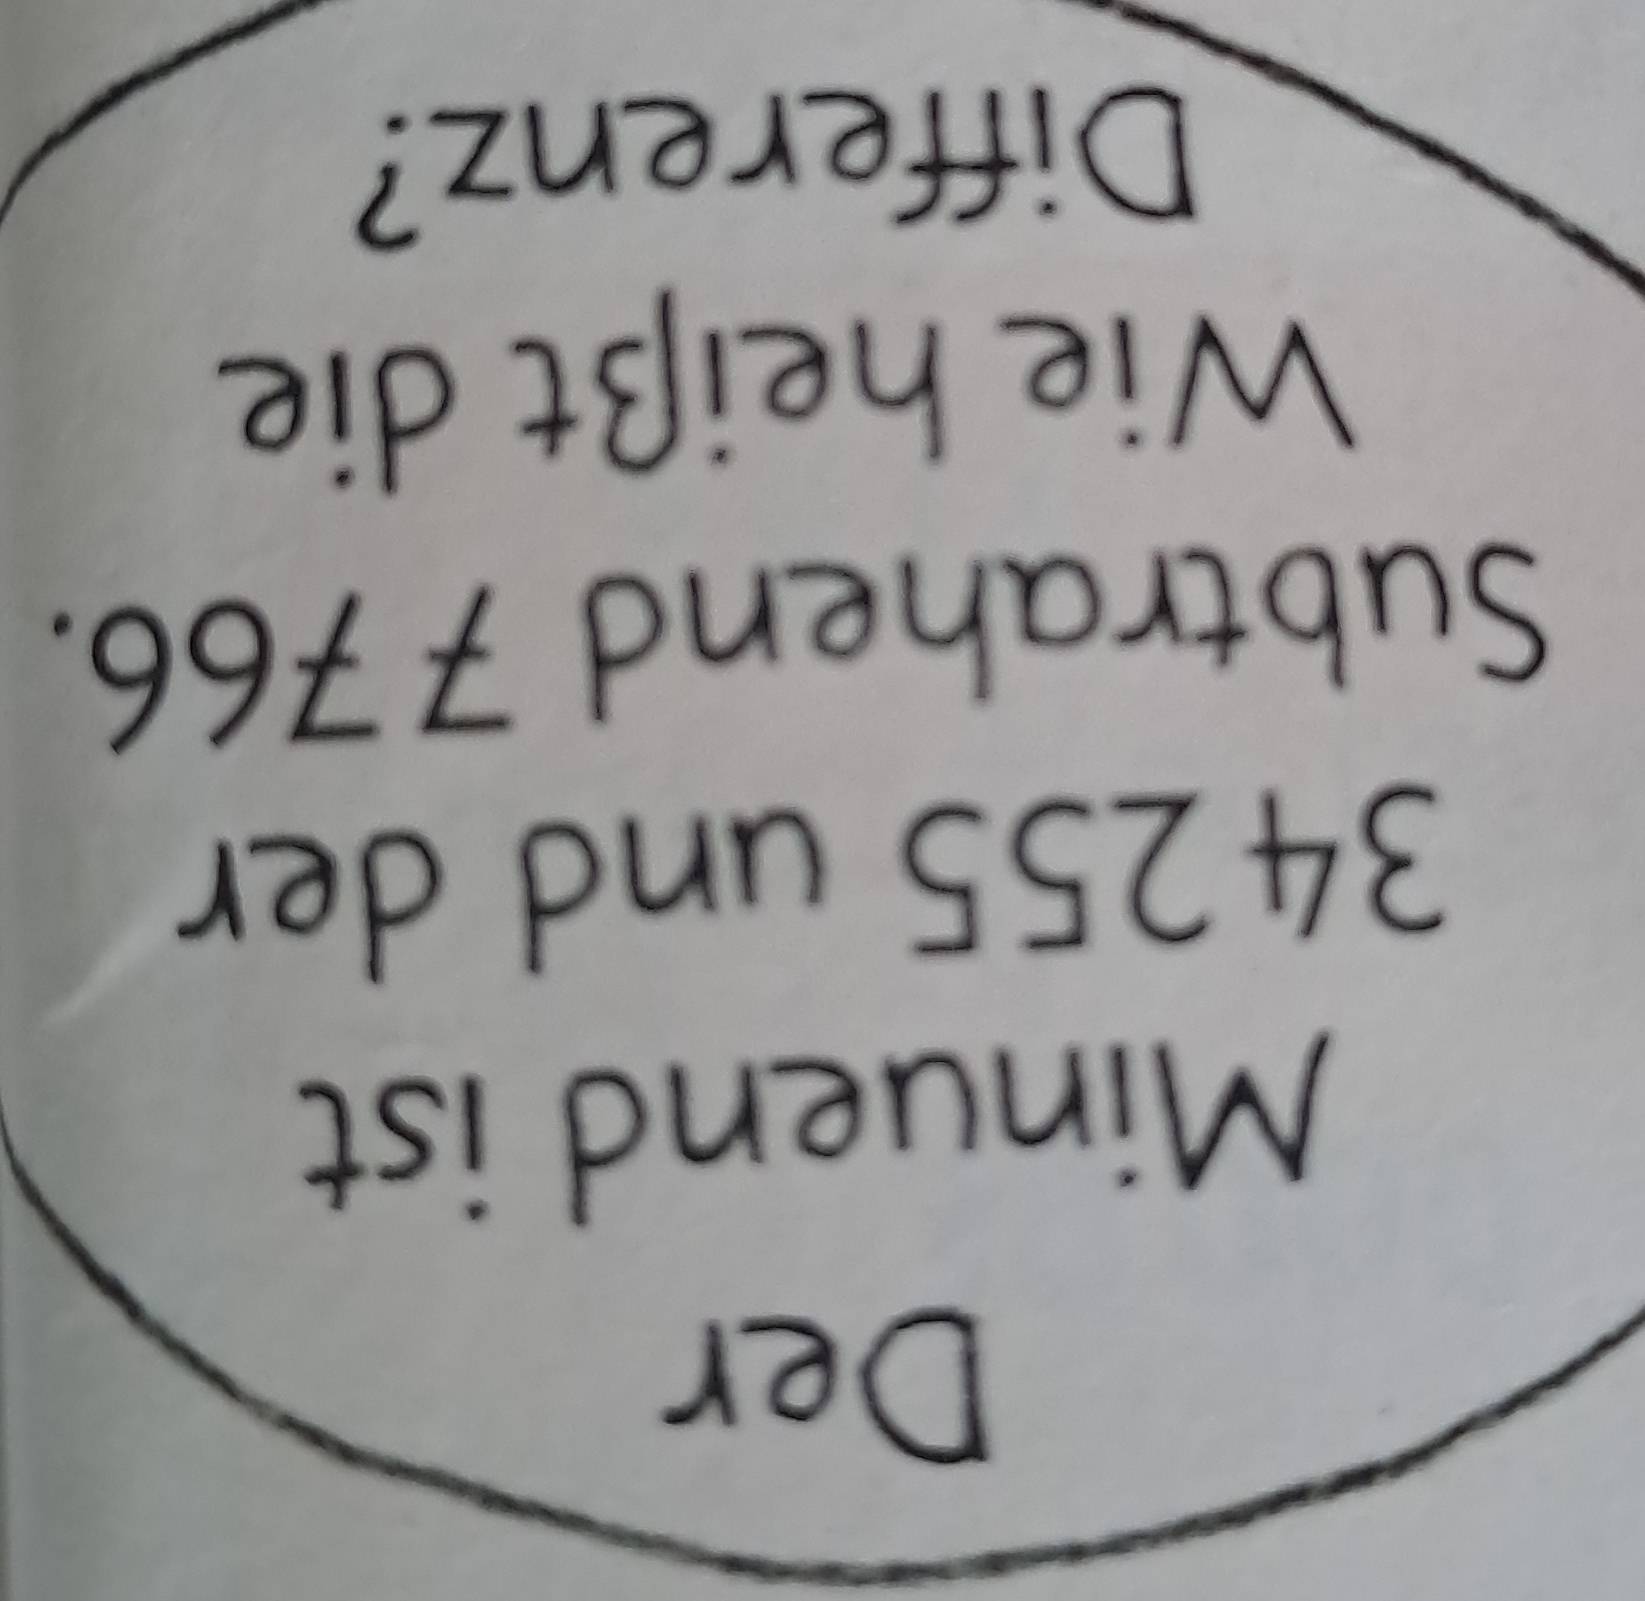 Der
Minuend ist
34 255 und der
Subtrahend 7 766.
Wie heißt die
Differenz?